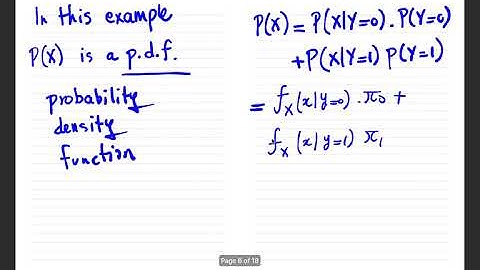 In this example
P(X) is a p.d.f.
probability
density
function
P(X) = P(X|Y=0) . P(Y=0)
+ P(X|Y=1) P(Y=1)
= fₓ(x|y=0) . π₀ +
fₓ(x|y=1) π₁
Page 6 of 18